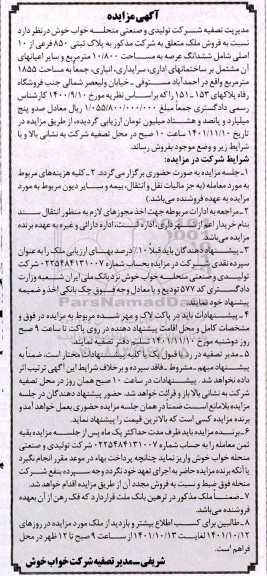 آگهی مزایده
مدیریت تصفیه شرکت تولیدی و صنعتی منحله خواب خوش در نظر دارد
نسبت به فروش ملک متعلق به شرکت مذکور به پلاک ثبتی ۸۵۰ فرعی از ۱۰
اصلی شامل ششدانگ عرصه به مساحت ۱۰/۸۰۰ مترمربع و سایر اعیانهای
آن مشتمل بر ساختمانهای اداری، سرایداری، انباری، جمعاً به مساحت ۱۸۵۵
مترمربع واقع در احمدآباد مستوفی ـ خیابان ولیعصر شمالی جنب فروشگاه
رفاه پلاکهای ۱۵۳ ـ ۱۵۱ را که بر اساس نظریه مورخ ۱۴۰۰/۹/۱۰ کارشناس
رسمی دادگستری جمعاً مبلغ ۱/۰۵۵/۸۰۰/۰۰۰/۰۰۰ ریال معادل صد و پنج
میلیارد و پانصد و هشتاد میلیون تومان ارزیابی گردیده، از طریق مزایده در
تاریخ ۱۴۰۱/۱۱/۱۰ ساعت ۱۰ صبح در محل تصفیه شرکت به نشانی بالا و با
شرایط زیر و وضع موجود بفروش رساند.
شرایط شرکت در مزایده:
۱ـ جلسه مزایده به صورت حضوری برگزار می‌گردد. ۲ـ کلیه هزینه‌های مربوط
به مورد معامله (به جز مالیات نقل و انتقال، بیمه و سایر دیون مربوط به مورد
مزایده به عهده فروشنده می‌باشد.)
۲ـ مراجعه به ادارات مربوطه جهت اخذ مجوزهای لازم به منظور انتقال سند
بنام خریدار اعم از شهرداری، اداره ثبت، اداره دارائی و غیره به عهده برنده
مزایده می‌باشد.
۳ـ پیشنهاد دهندگان باید قبلاً ۱۰٪ درصد بهای ارزیابی ملک را به عنوان
سپرده نقدی شرکت در مزایده بحساب شماره ۰۲۲۵۴۸۴۱۳۱۰۰۷ شرکت
تولیدی و صنعتی منحله خواب خوش نزد بانک ملی ایران شعبه وزارت
دادگستری کد ۵۷۷ تودیع و یا معادل وجه فوق چک بانکی اخذ و ضمیمه
پیشنهاد خود نمایند.
۴ـ پیشنهادات باید در پاکت لاک و مهر شده مربوط به مزایده در فوق و
مشخصات کامل و محل اقامت پیشنهاد دهنده در روی پاکت تا ساعت ۹ صبح
روز دوشنبه مورخ ۱۴۰۱/۱۱/۱۰ تسلیم دفتر تصفیه نمایند.
۵ـ مدیر تصفیه در رد یا قبول یک یا کلیه پیشنهادات مختار است، ضمناً به
پیشنهاد مبهم ـ مشروط ـ فاقد سپرده و برخلاف شرایط این آگهی ترتیب اثر
داده نخواهد شد. پیشنهادات در ساعت ۱۰ صبح همان روز در محل تصفیه
شرکت به نشانی بالا باز و قرائت خواهد شد. حضور پیشنهاد دهندگان در جلسه
مزایده بلامانع است ضمناً در همان جلسه مزایده حضوری بعمل خواهد آمد و
برنده مزایده کسی است که بالاترین قیمت را پیشنهاد نماید.
۶ـ برنده مزایده باید ظرف مدت حداکثر یک ماه پس از جلسه مزایده بقیه
ثمن معامله را به حساب شماره ۰۲۲۵۴۸۴۱۳۱۰۰۷ شرکت تولیدی و صنعتی
منحله خواب خوش واریز نماید چنانچه پرداخت بهاء در موعد مقرر انجام نگیرد
یا آنکه برنده مزایده حاضر به اجرای تعهد خود نگردد وجه سپرده بنفع شرکت
منحله فوق ضبط و نسبت به فروش مجدد آن از طریق مزایده اقدام خواهد شد.
۷ـ ضمناً ملک مذکور در ترهین بانک ملت قرار دارد که فک رهن از آن بعهده
فروشنده می‌باشد.
۸ـ طالبین برای کسب اطلاع بیشتر و بازدید از ملک مورد مزایده در روزهای
۱۴۰۱/۱۰/۱۲ لغایت ۱۴۰۱/۱۰/۱۳ از ساعت ۹ صبح تا ۱۲ ظهر در محل
فراهم است.
شریفی ـ مدیر تصفیه شرکت خواب خوش